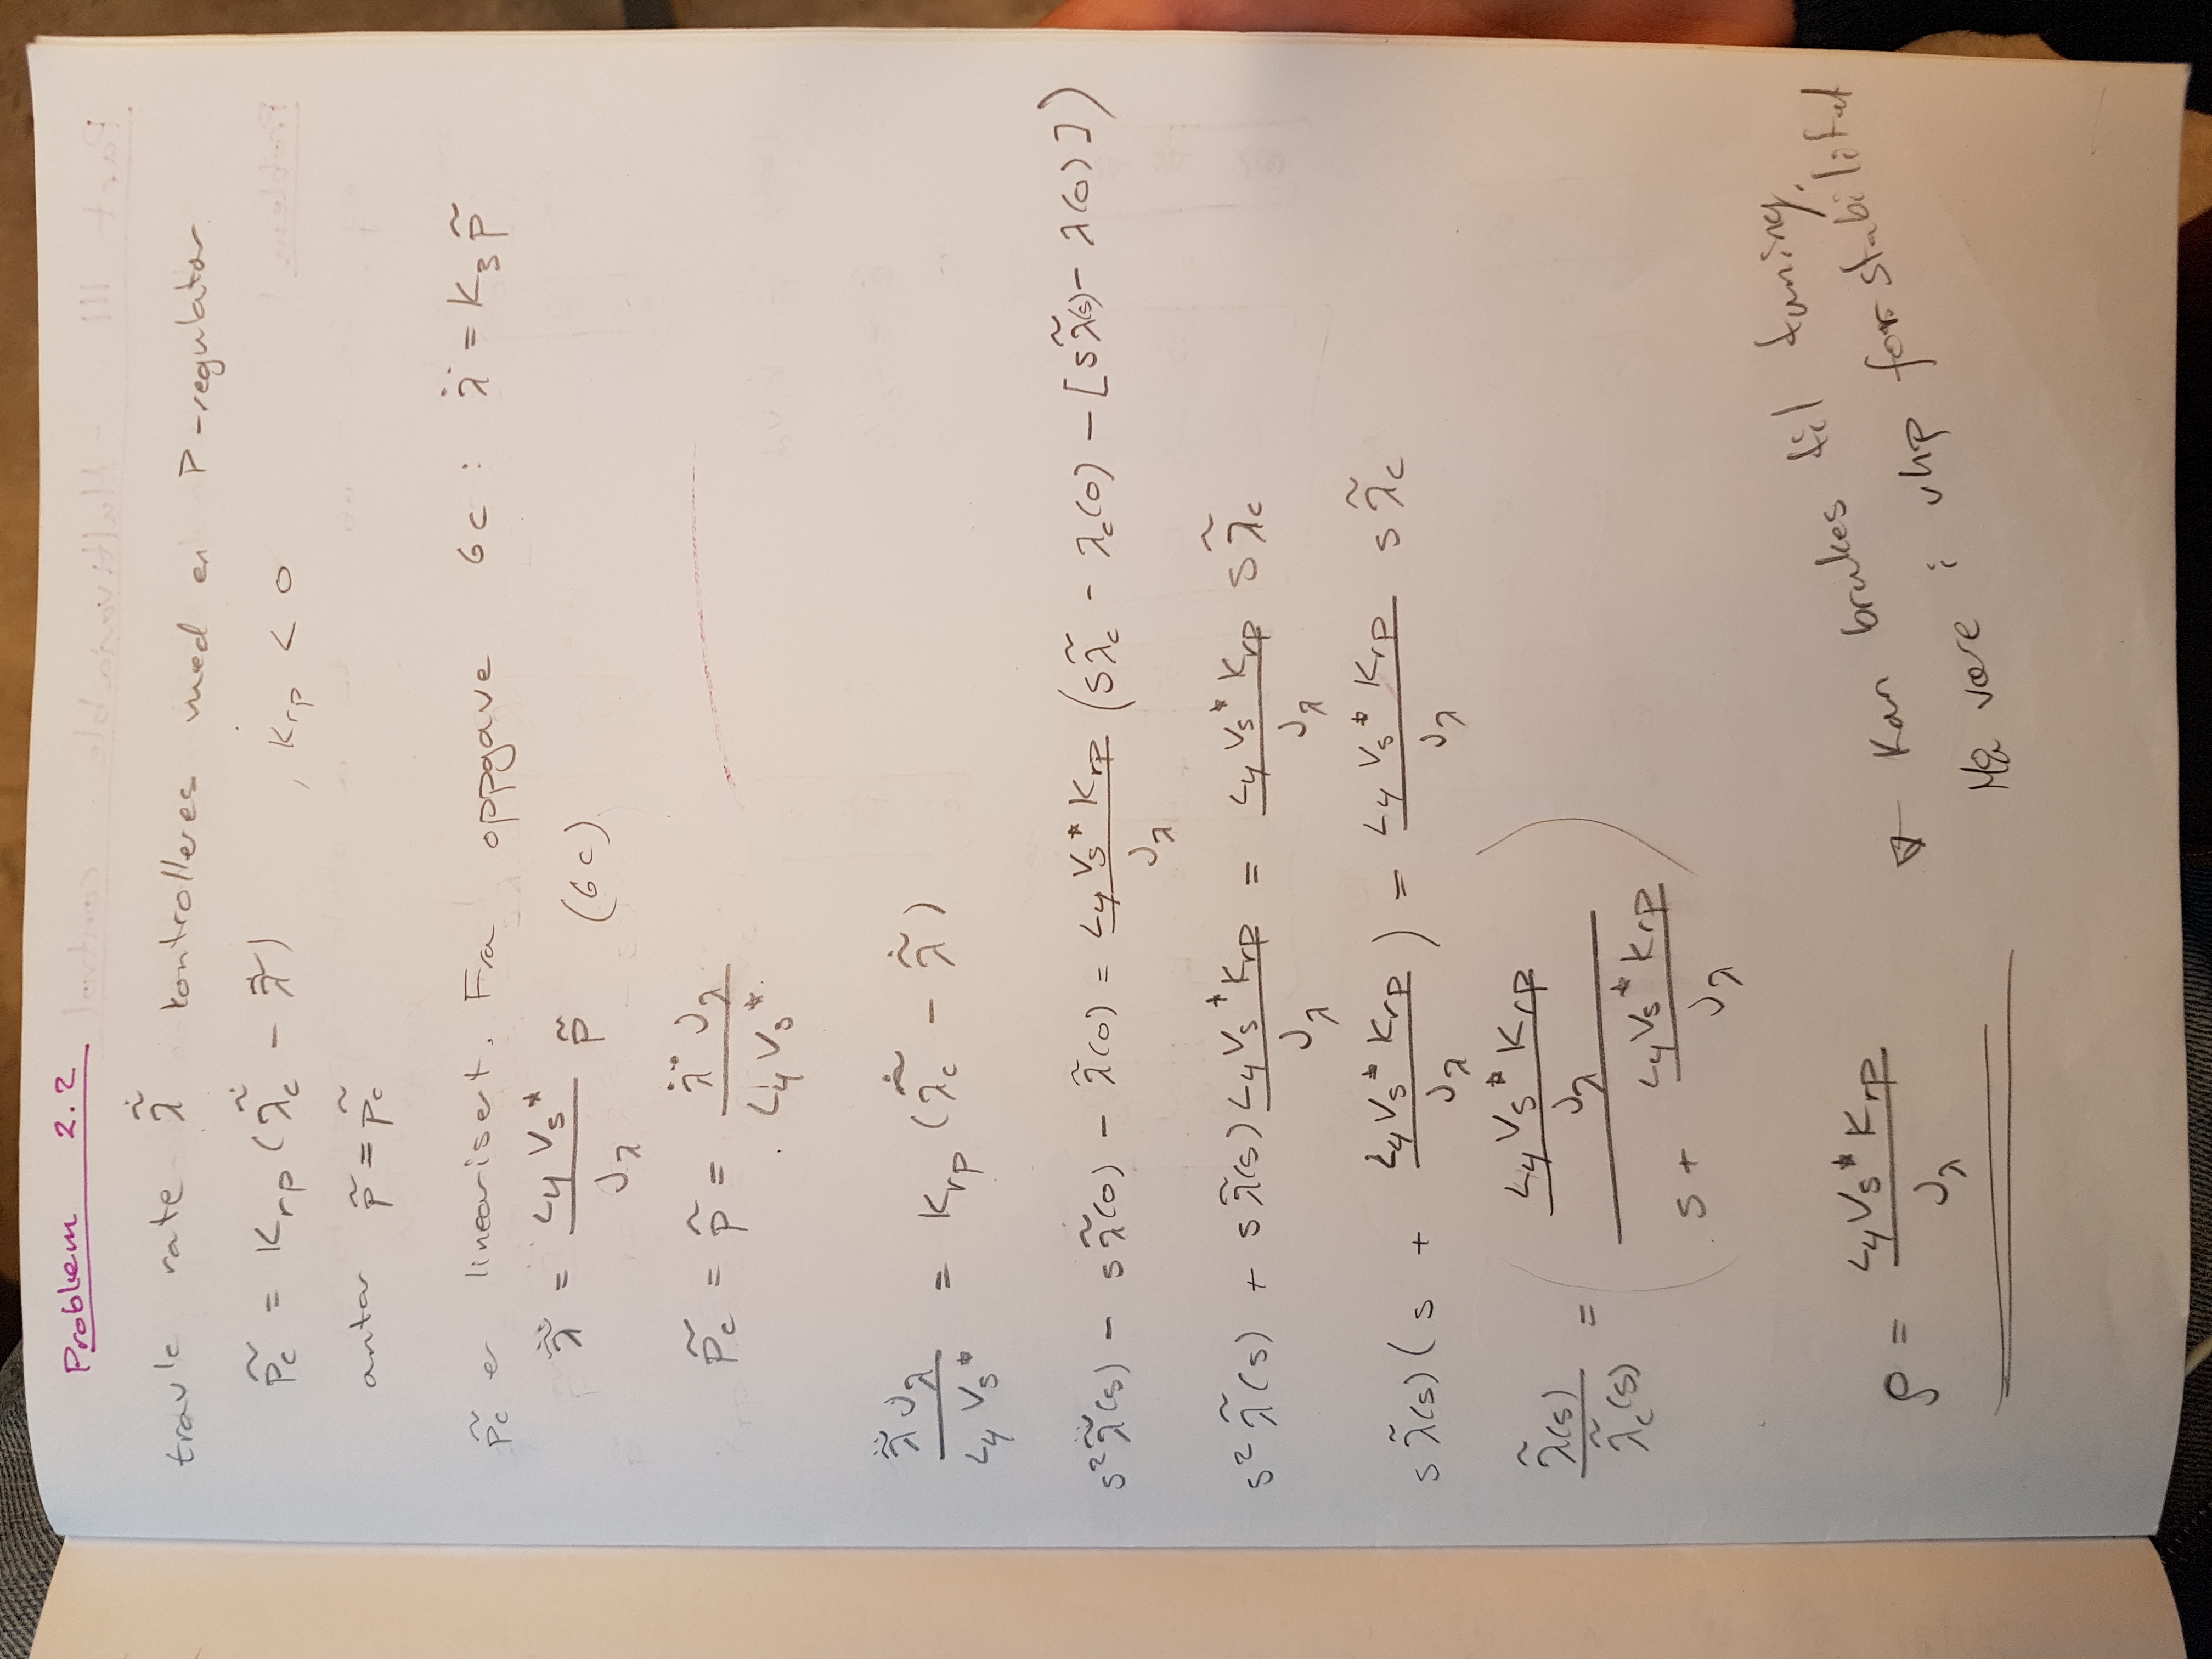 Problem 2.2
travle rate λ̃̇ kontrolleres med en P-regulator
p̃c = Krp (λ̃̇c - λ̃̇) , Krp < 0
antar p̃ = p̃c
p̃c er linearisert. Fra oppgave 6c: λ̈ = K3 p̃
λ̃̈ = L4 Vs* / Jλ p̃ (6c)
p̃c = p̃ = λ̈ Jλ / L4 Vs*
λ̃̈ Jλ / L4 Vs* = Krp (λ̃̇c - λ̃̇)
s² λ̃(s) - s λ̃(0) - λ̃(0) = L4 Vs* Krp / Jλ (s λ̃c - λc(0) - [s λ̃(s) - λ(0)])
s² λ̃(s) + s λ̃(s) L4 Vs* Krp / Jλ = L4 Vs* Krp / Jλ s λ̃c
s λ̃(s) (s + L4 Vs* Krp / Jλ) = L4 Vs* Krp / Jλ s λ̃c
λ̃(s) / λ̃c(s) = ( L4 Vs* Krp / Jλ / s + L4 Vs* Krp / Jλ )
ρ = L4 Vs* Krp / Jλ
← Kan brukes til tuning.
Må være i vhp for stabilitet